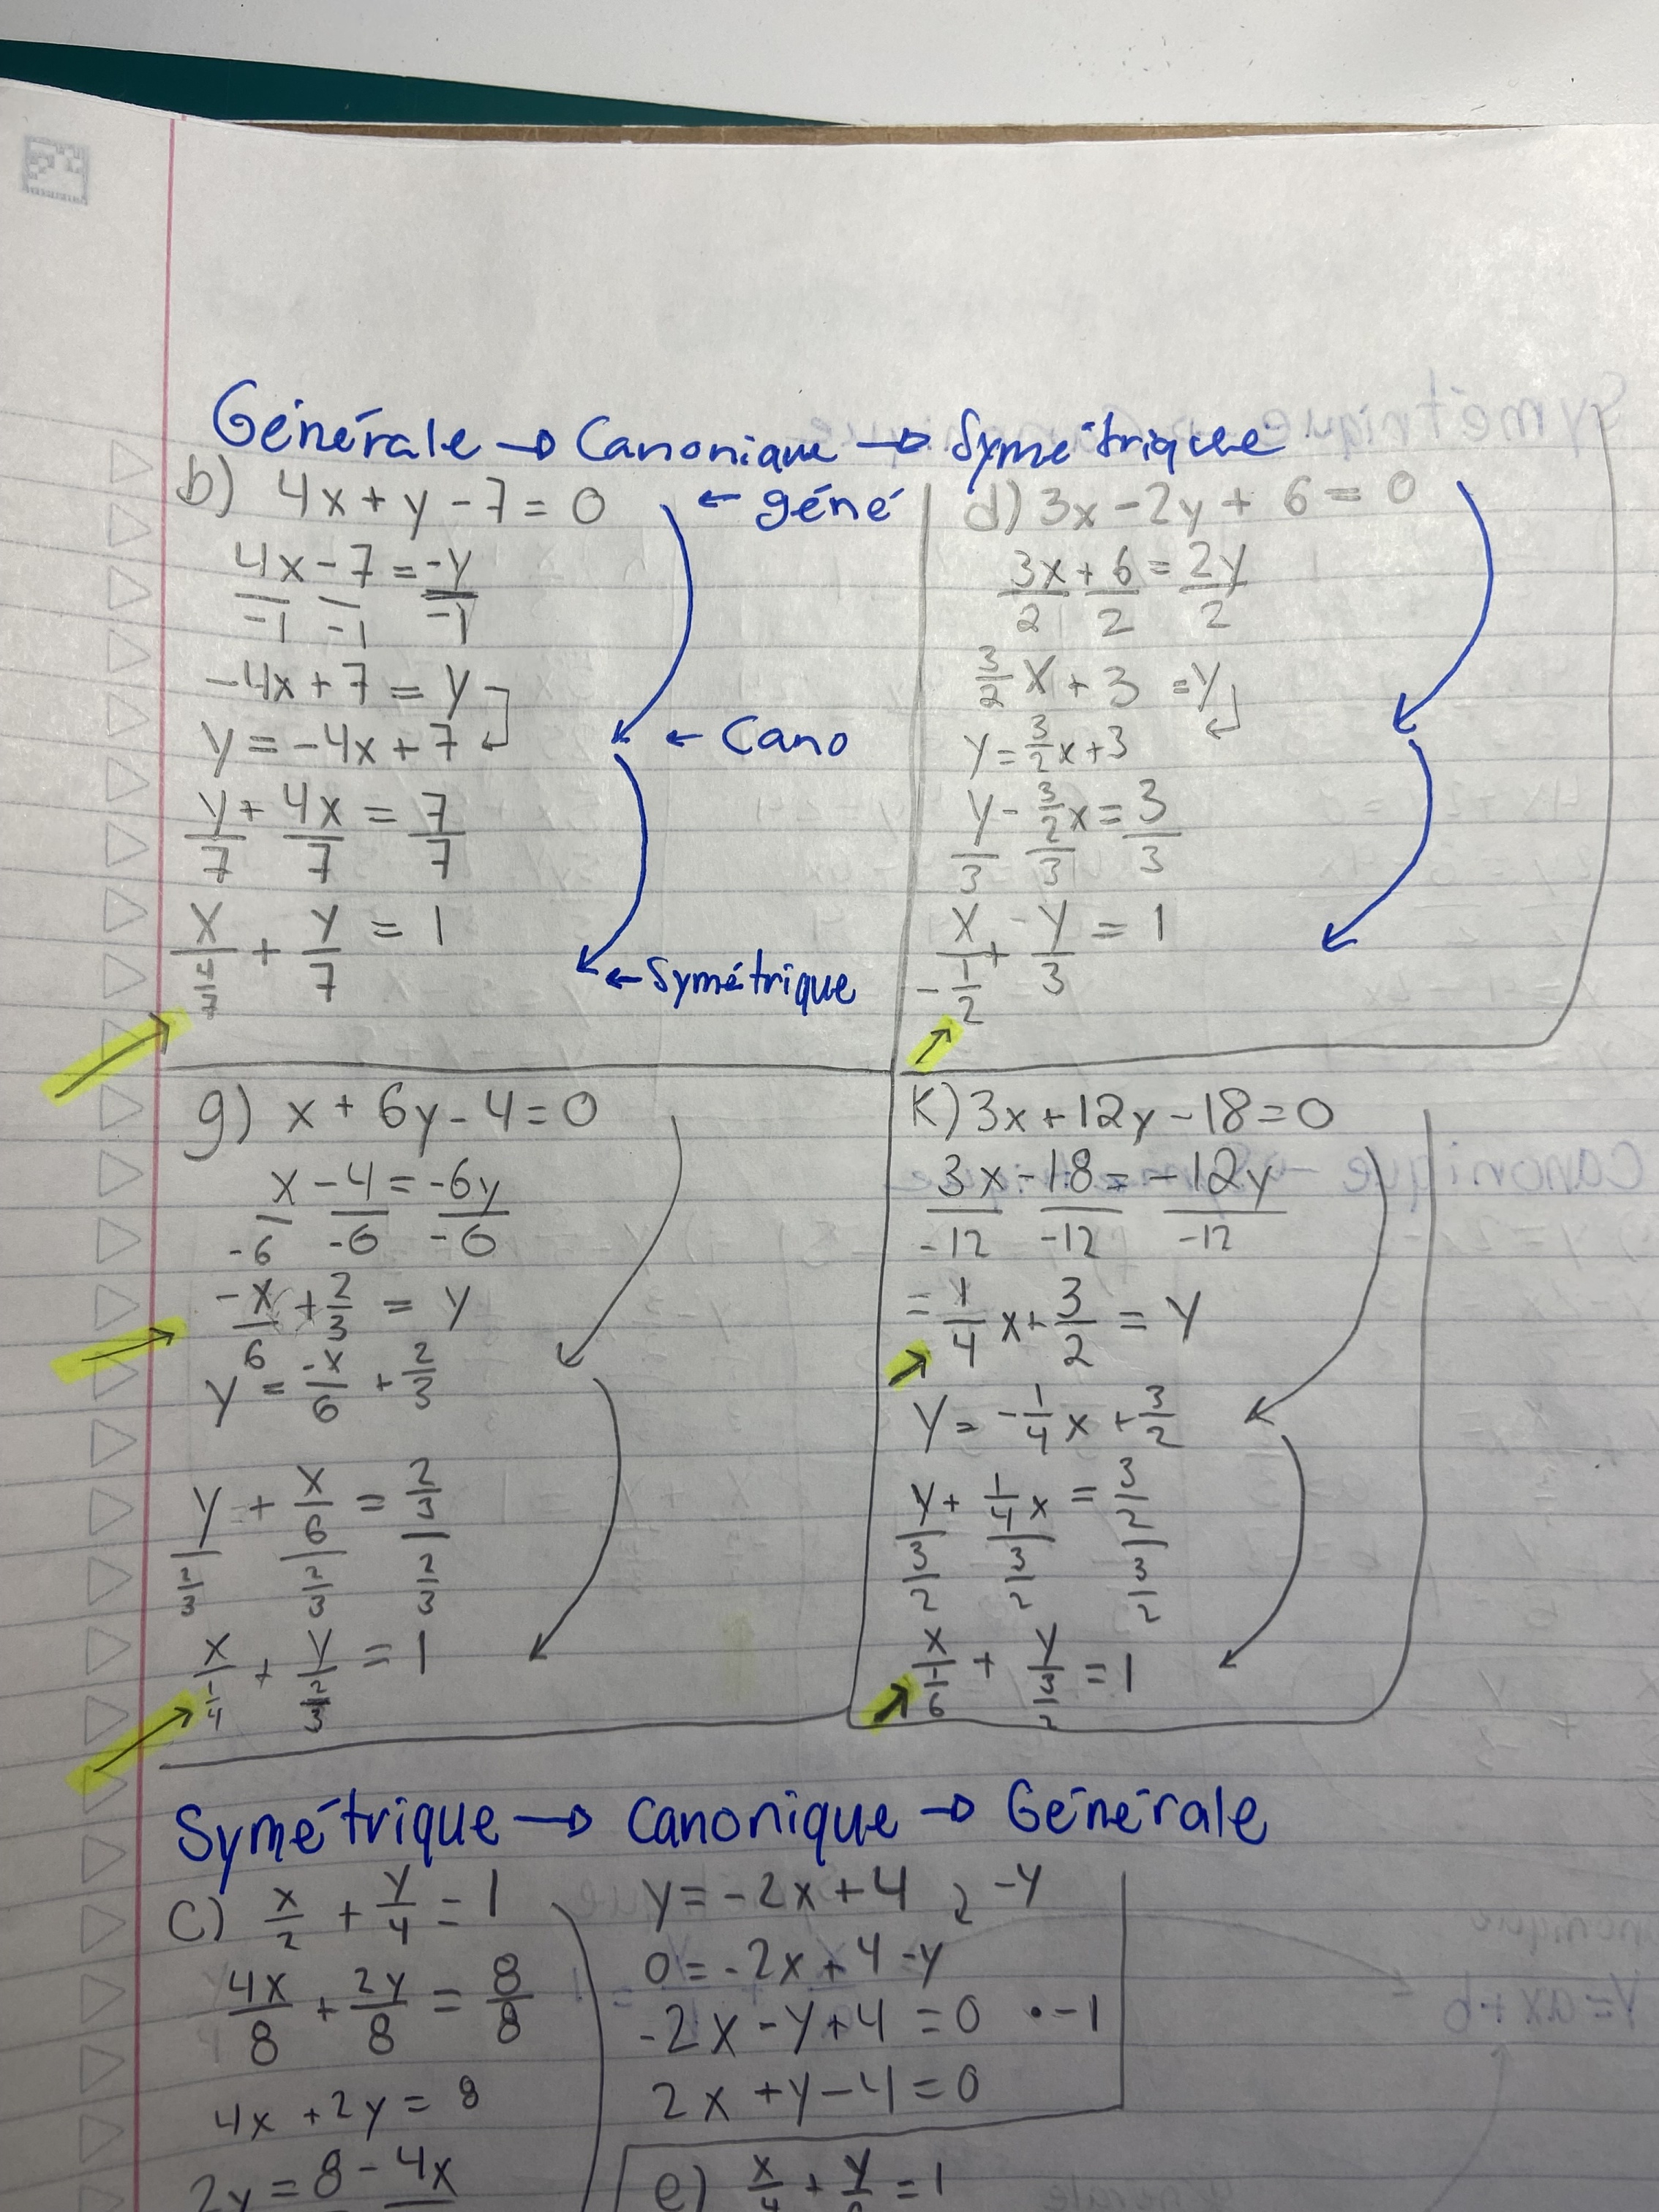 Générale → Canonique → Symétrique
b) 4x + y - 7 = 0 ← géné
4x/-1 - 7/-1 = -y/-1
-4x + 7 = y
y = -4x + 7 ← Cano
y/7 + 4x/7 = 7/7
x/(4/7) + y/7 = 1 ← Symétrique
d) 3x - 2y + 6 = 0
3x/2 + 6/2 = 2y/2
3/2 x + 3 = y
y = 3/2 x + 3
y/3 - (3/2 x)/3 = 3/3
x/(-1/2) + -y/3 = 1
g) x + 6y - 4 = 0
x/-6 - 4/-6 = -6y/-6
-x/6 + 2/3 = y
y = -x/6 + 2/3
y/(2/3) + (x/6)/(2/3) = (2/3)/(2/3)
x/(1/4) + y/(2/3) = 1
K) 3x + 12y - 18 = 0
3x/-12 - 18/-12 = -12y/-12
= 1/4 x + 3/2 = y
y = -1/4 x + 3/2
y/(3/2) + (1/4 x)/(3/2) = (3/2)/(3/2)
x/(1/6) + y/(3/2) = 1
Symétrique → Canonique → Générale
c) x/2 + y/4 = 1
4x/8 + 2y/8 = 8/8
4x + 2y = 8
2y = 8 - 4x
y = -2x + 4 -y
0 = -2x + 4 - y
-2x - y + 4 = 0 • -1
2x + y - 4 = 0